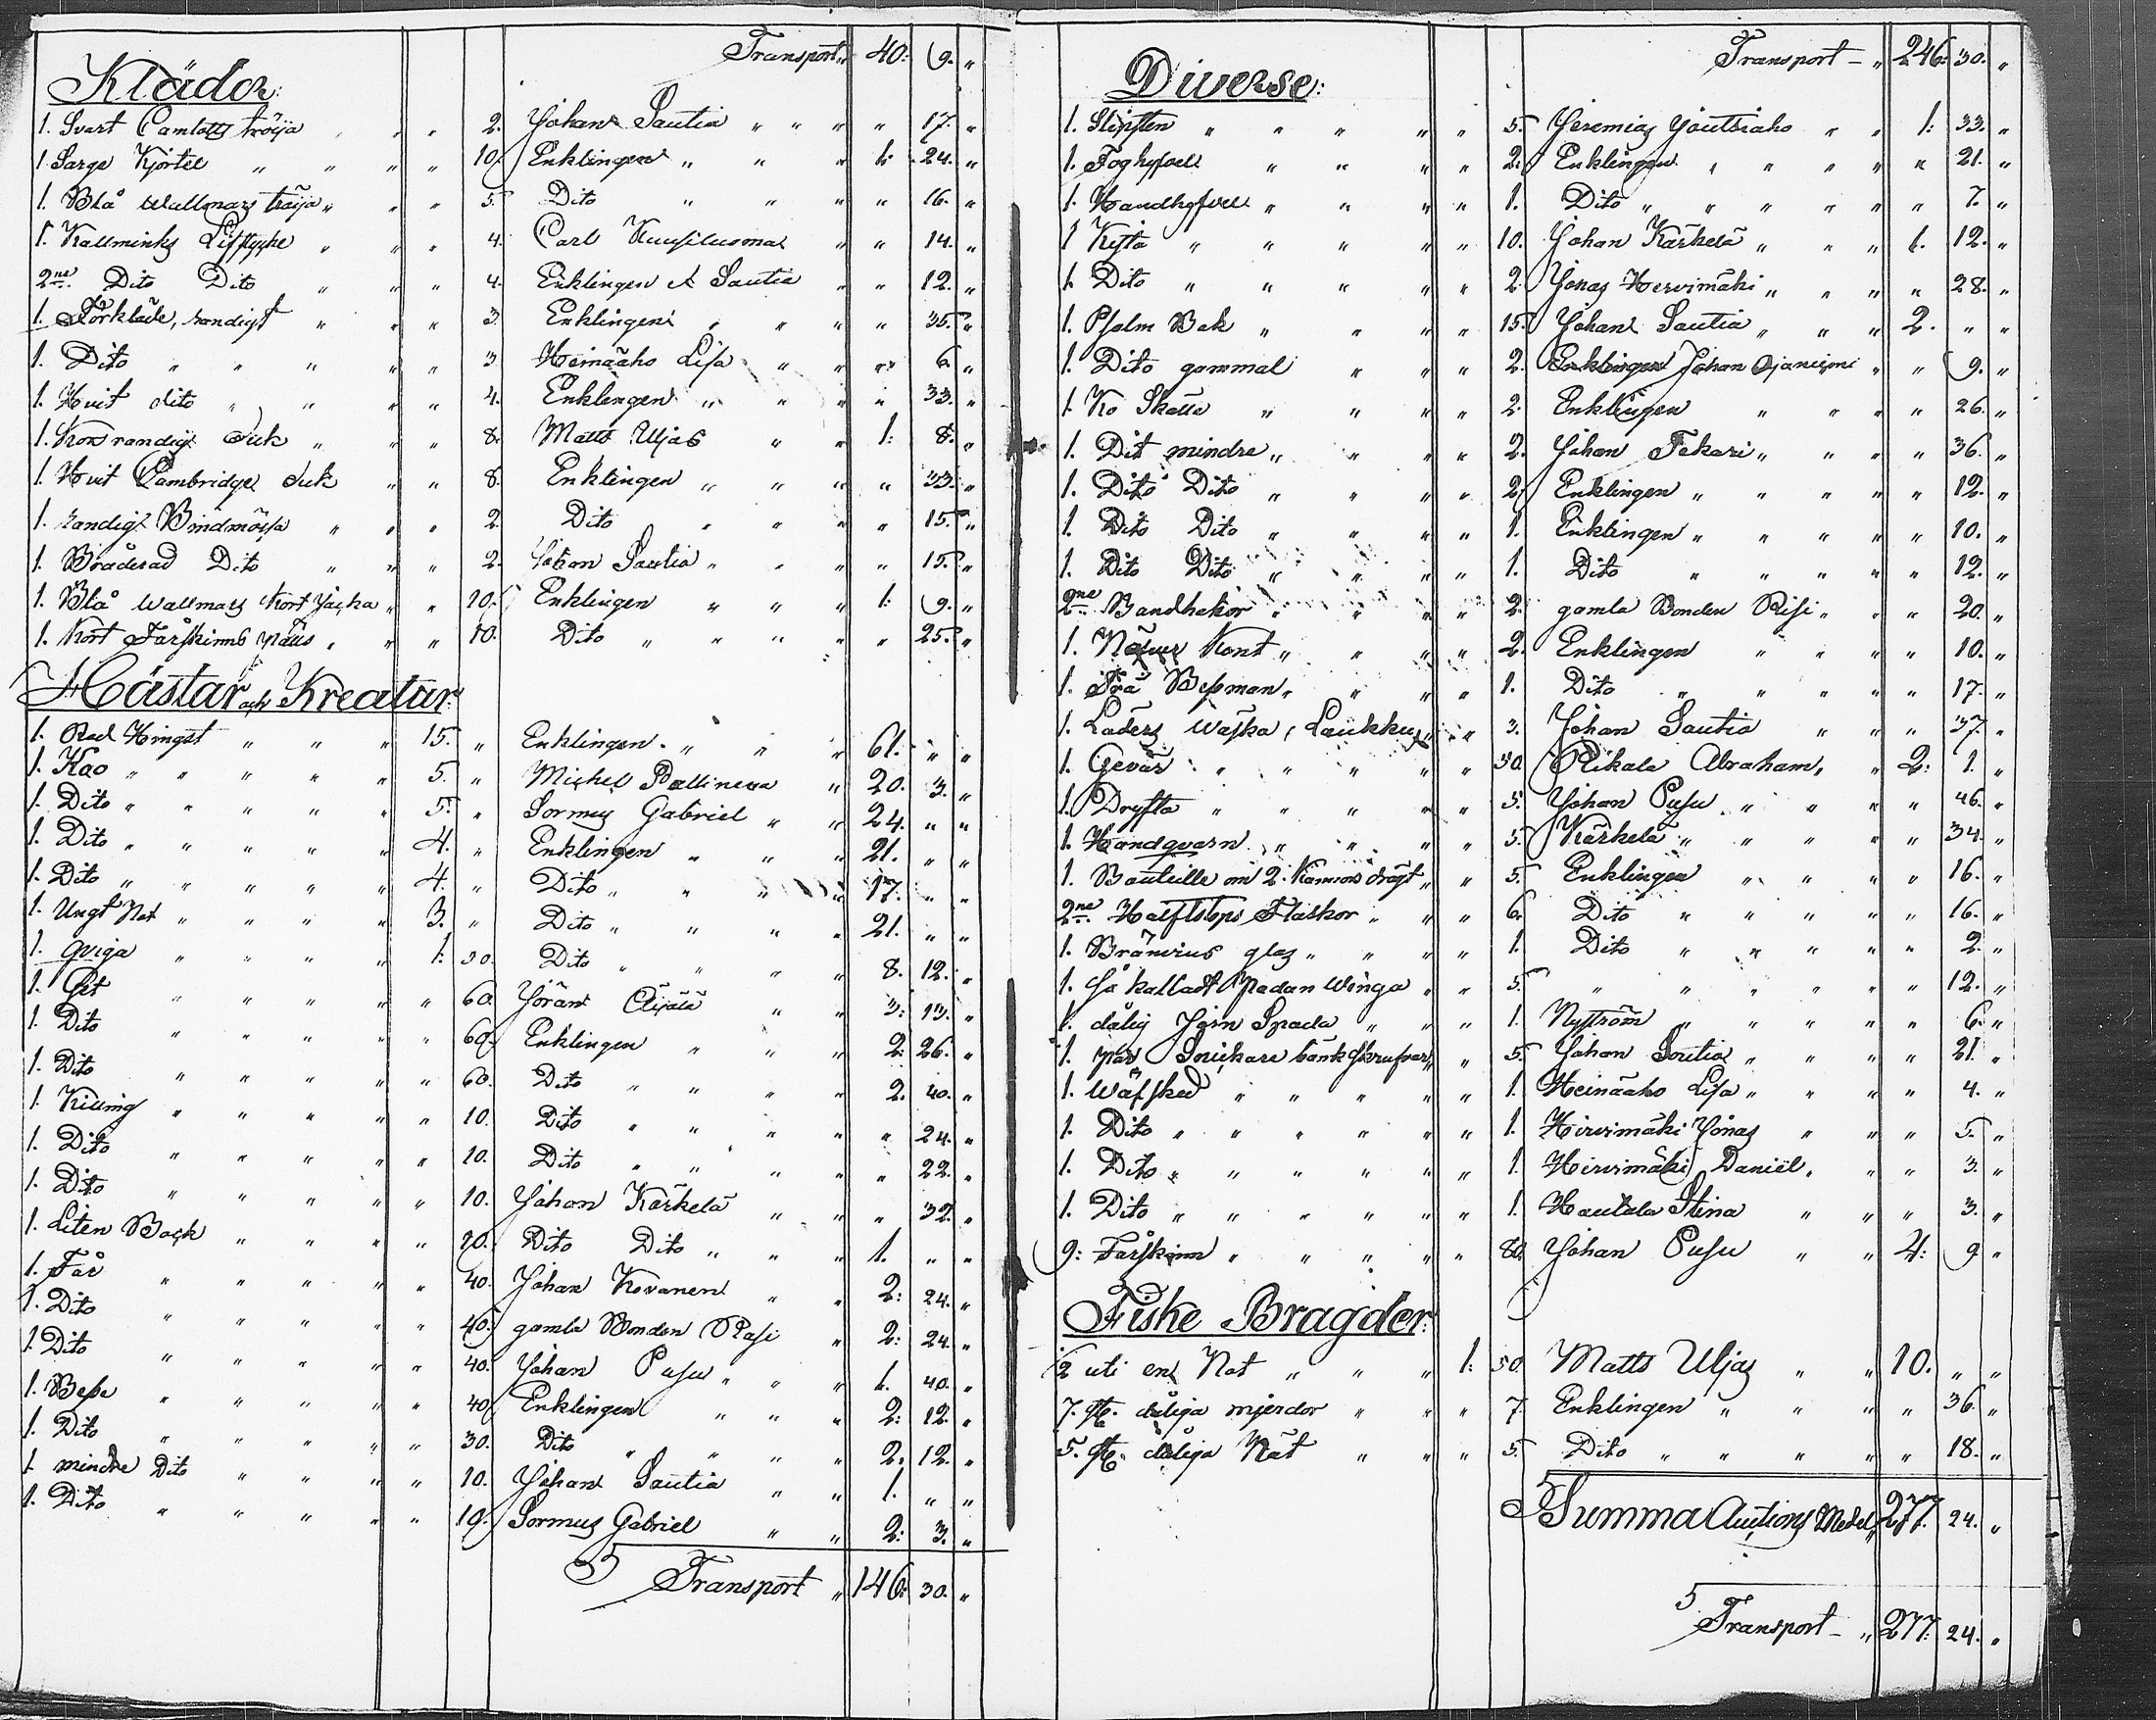 Transport „ 40: 9. „
Kläder:
1. Svart Camlotts tröija „ „ 2. Johan Sautia „ „ „ „ 17. „
1. Sarge Kjortel „ „ „ „ 10. Enklingen „ „ „ 1: 24. „
1. Blå wallmars tröija „ „ 5. Dito „ „ „ „ 16. „
1. Kallminks Lifstycke „ „ „ 4. Carl „ „ 14. „
2ne Dito Dito „ „ „ 4. Enklingen & Sautia „ „ 12. „
1. Förkläde, randigt „ „ „ 3. Enklingen „ „ „ „ 35. „
1. Dito „ „ „ „ „ 3. Heinäaho Lisa „ „ „ 6. „
1. Hvit dito „ „ „ „ 4. Enklingen „ „ „ „ 33. „
1. randig duk „ „ „ 8. Matts Uljas „ „ 1: 8. „
1. Hvit Cambridge duk „ „ 8. Enklingen „ „ „ „ 33. „
1. randig Bindmössa „ „ „ 2. Dito „ „ „ „ 15. „
1. Bråderad Dito „ „ „ 2. Johan Sautia „ „ „ „ 15. „
1. Blå wallmars Kort Jacka „ „ 10. Enklingen „ „ „ 1: 9. „
1. Kort Fårskinns päls „ „ „ 10. Dito „ „ „ „ 25. „
Hästar och Kreatur:
1. Hingst „ „ „ 15. „ Enklingen „ „ „ 61. „ „
1. Kao „ „ „ „ „ 5. „ Michel Pallinen „ 20. 3. „
1. Dito „ „ „ „ „ 5. „ Sormus Gabriel „ „ 24. „ „
1. Dito „ „ „ „ „ 4. „ Enklingen „ „ „ 21. „ „
1. Dito „ „ „ „ „ 4. „ Dito „ „ „ „ 17. „ „
1. Ungt Nöt „ „ „ „ 3. „ Dito „ „ „ „ 21. „ „
1. Qviga „ „ „ „ 1. 30. Dito „ „ „ 8. 12. „
1. Get „ „ „ „ „ 60. Jöran „ „ 3: 13. „
1. Dito „ „ „ „ „ 60. Enklingen „ „ 2: 26. „
1. Dito „ „ „ „ „ 60. Dito „ „ „ „ 2. 40. „
1. Killing „ „ „ „ „ 10. Dito „ „ „ „ „ 24. „
1. Dito „ „ „ „ „ 10. Dito „ „ „ „ 22. „
1. Dito „ „ „ „ „ 10. Johan Kärkelä „ „ „ 32. „
1. Liten Bock „ „ „ „ 20. Dito Dito „ „ „ 1. „ „
1. Får „ „ „ „ „ 40. Johan Kovanen „ „ 2: 24. „
1. Dito „ „ „ „ „ 40. gamla Bonden Rasi „ 2: 24. „
1. Dito „ „ „ „ „ 40. Johan Pusu „ „ „ 1. 40. „
1. Besse „ „ „ „ „ 40. Enklingen „ „ „ 2: 12. „
1. Dito „ „ „ „ „ 30. Dito „ „ „ „ 2. 12. „
1. mindre Dito „ „ „ „ 10. Johan Sautia „ „ 1. „ „
1. Dito „ „ „ „ „ 10. Sormus Gabriel „ „ 2: 3. „
Transport „ 146: 30. „
Transport – „ 246: 30. „
Diverse:
1. Slipsten „ „ „ „ „ 5. Jeremias Joutsiaho „ „ 1: 33. „
1. Foghyfvel „ „ „ „ 2. Enklingen „ „ „ „ „ 21. „
1. Handhyfvel „ „ „ „ 1. Dito „ „ „ „ „ „ 7. „
1 Kista „ „ „ „ „ 10. Johan Kärkelä „ „ „ 1. 12. „
1. Dito „ „ „ „ „ 2. Jonas Hervimäki „ „ „ „ 28. „
1. Psalm Bok „ „ „ „ 15. Johan Sautia „ „ „ 2. „ „
1. Dito gammal „ „ „ 2. Enklingen Johan Ojaniemi „ „ 9. „
1. Ko Skälla „ „ „ „ 2. Enklingen „ „ „ „ 26. „
1. Dit mindre „ „ „ „ 2. Johan Tekari „ „ „ „ 36. „
1. Dito Dito „ „ „ „ 2. Enklingen „ „ „ „ „ 12. „
1. Dito Dito „ „ „ „ 1. Enklingen „ „ „ „ „ 10. „
1. Dito Dito „ „ „ „ 1. Dito „ „ „ „ „ 12. „
2ne Bandhakor „ „ „ „ 2. gamla Bonden Risi „ „ „ 20. „
1. Näfver Kont „ „ „ „ 2. Enklingen „ „ „ „ 10. „
1. Trä Besman „ „ „ „ 1. Dito „ „ „ „ „ 17. „
1. Läders Wäska, Laukku „ „ 3. Johan Sautia „ „ „ 37. „
1. Gevär „ „ „ „ „ 50. Rikala Abraham, „ 2: 1. „
1. Dryfta „ „ „ „ „ 5. Johan Pusu „ „ „ „ 46. „
1. Handqvarn „ „ „ „ 5. Kärkelä „ „ „ „ „ 34. „
1. Bouteille om 2. Kannors drägt „ „ 5. Enklingen „ „ „ „ 16. „
2ne Halfstops Flaskor „ „ „ 6. Dito „ „ „ „ „ 16. „
1. Bränvins glas „ „ „ „ 1. Dito „ „ „ „ „ 2. „
1. så kalladt Winga „ „ 5. „ „ „ „ „ „ 12. „
1. dålig Jern Spada „ „ „ 1. Nyström „ „ „ „ „ 6. „
1. par Snickare bänk skrufvar „ „ 5. Johan Sautia „ „ „ „ 21. „
1. Wäfsked „ „ „ „ „ 1. Heinäaho Lisa „ „ „ „ 4. „
1. Dito „ „ „ „ „ „ 1. Hirvimäki Jonas „ „ „ 5. „
1. Dito „ „ „ „ „ „ 1. Hirvimäki Daniel, „ „ „ 3. „
1. Dito „ „ „ „ „ „ 1. Hautala Stina „ „ „ 3. „
9: Fårskinn „ „ „ „ „ 80. Johan Pusu „ „ 4: 9 „
Fiske Bragder:
½ uti en Not „ „ „ 1: 50. Matts Uljas „ „ 10. „ „
7. st. dåliga mjerdor „ „ „ 7. Enklingen „ „ „ „ 36. „
5. st. dåliga Nät „ „ „ 5. Dito „ „ „ „ „ 18. „
Summa Auctions Medel „ 277. 24. „
Transport – „ 277: 24. „